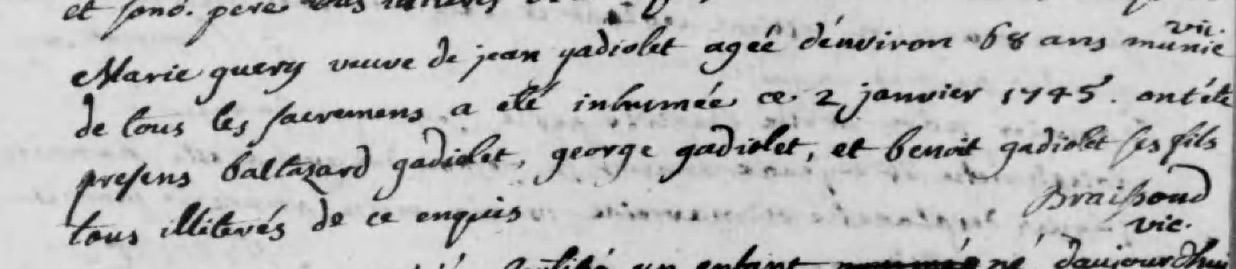 et sond. pere tous illiterés de
vic.
Marie guery veuve de jean gadiolet agéé dénviron 68 ans munie
de tous les sacremens a eté inhumée ce 2 janvier 1745. ont été
presens baltazard gadiolet, george gadiolet, et benoit gadiolet ses fils
tous illiterés de ce enquis
Braissoud
vic.
un enfant né daujourdhui